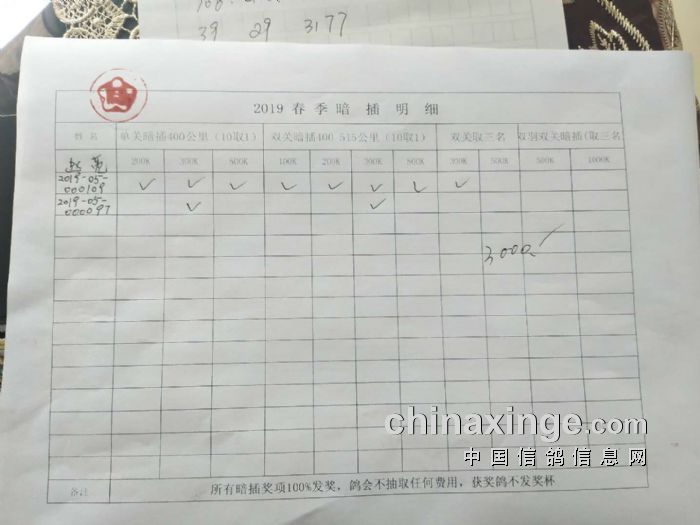 39 29 3177
2019 春季暗 插 明 细
姓 名 单关暗插400公里（10取1） 双关暗插400 515公里（10取1） 双关取三名 双羽双关暗插(取三名
200K 300K 500K 100K 200K 300K 500K 300K 500K 500K 1000K
2019-05-
000109 ✓ ✓ ✓ ✓ ✓ ✓ ✓ ✓
2019-05-
000097 ✓ ✓
chinaxinge.com
中国信鸽信息网
备注 所有暗插奖项100%发奖，鸽会不抽取任何费用，获奖鸽不发奖杯